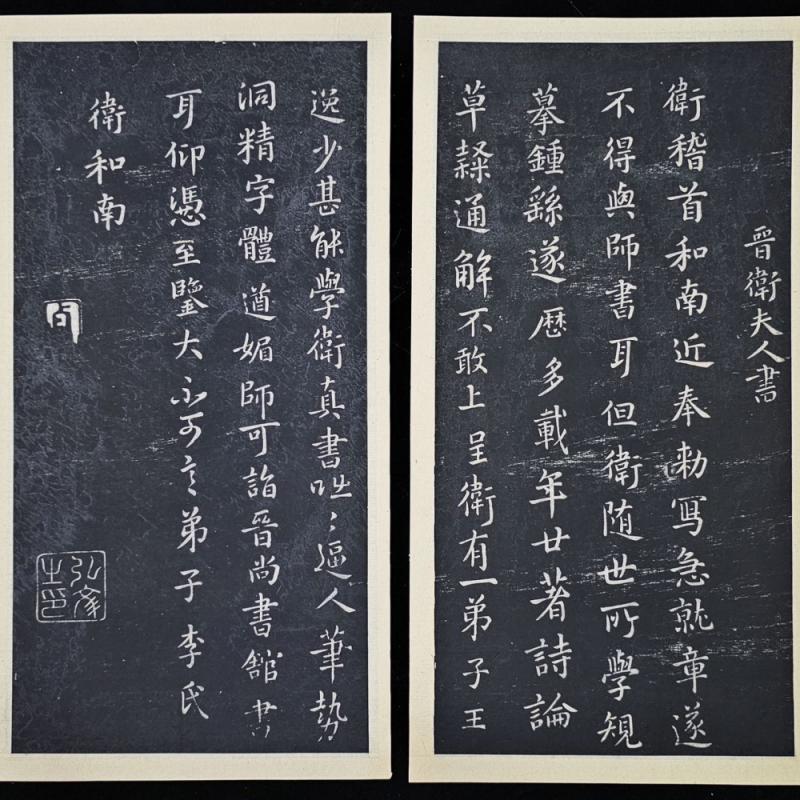 晉衛夫人書
衛稽首和南近奉勑寫急就章遂
不得與師書耳但衛随世所學規
摹鍾繇遂歷多載年廿著詩論
草隸通解不敢上呈衛有一弟子王
逸少甚能學衛真書咄〻逼人筆勢
洞精字體遒媚師可詣晉尚書館書
耳仰憑至鑒大不可言弟子李氏
衛和南